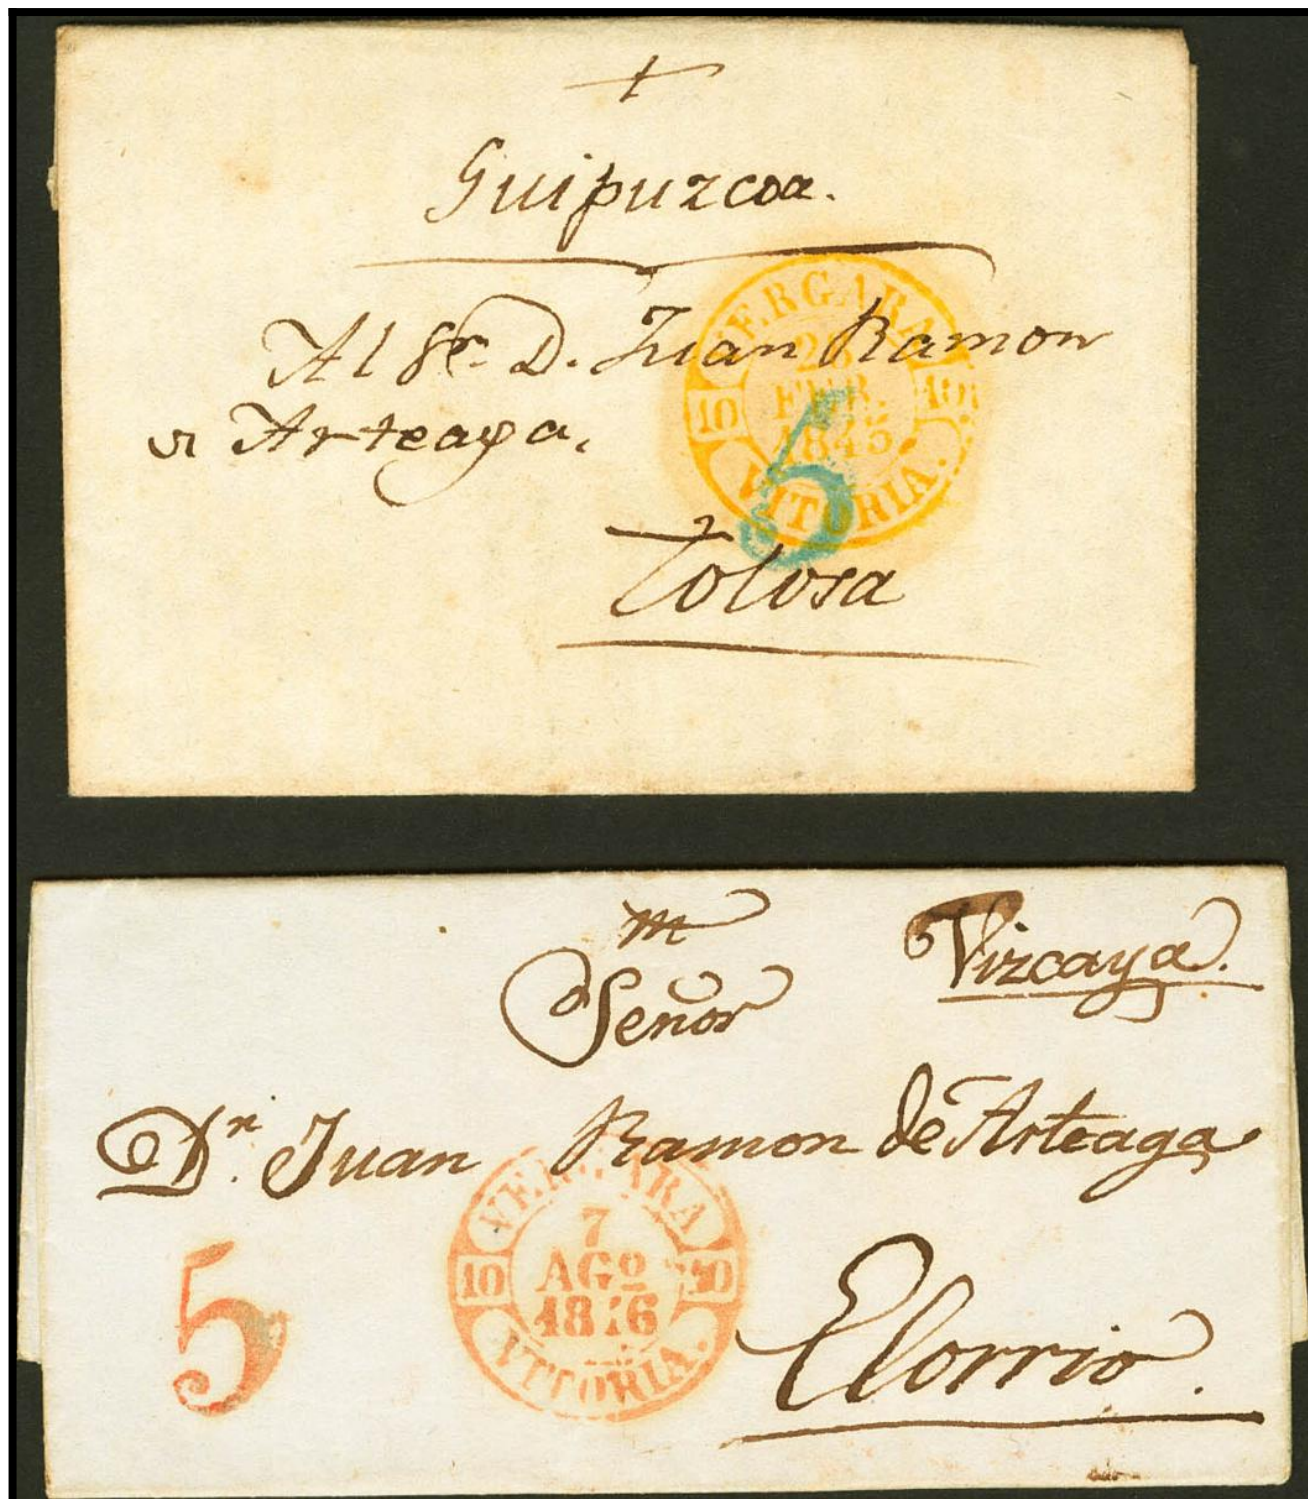 Guipuzcoa.
Al Sr. D. Juan Ramon
Arteaga,
Tolosa
VERGARA
10 26 10
FEB.
1845
VITORIA.
5
m
Señor
Vizcaya.
Dn. Juan Ramon de Arteaga
5
VERGARA
7
10 AGO 10
1846
VITORIA.
Elorrio.